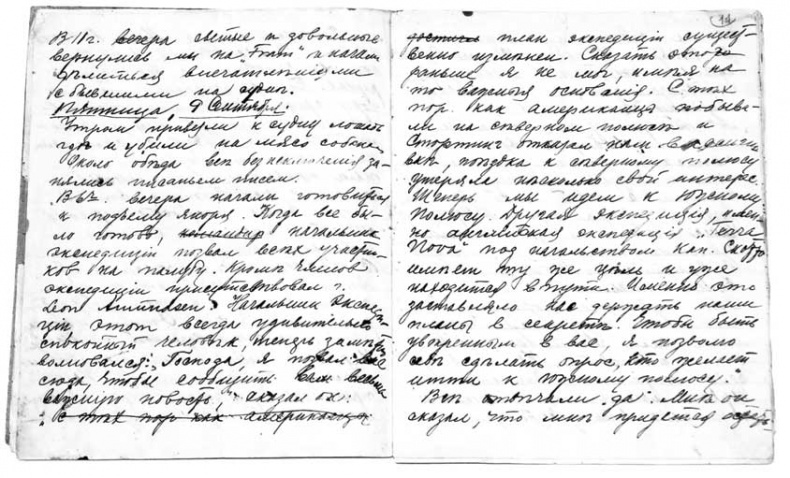 В 11 ч. вечера сытые и довольные
вернулись мы на "Fram" и начали
делиться впечатленіями
с бывшими на судне.
Пятница, 9 Сентября.
Утром привели к судну лошадь
где и убили на мясо собакам.
Около обѣда всѣ без исключенія за-
нялись писаньем писем.
В 6 ч. вечера начали готовиться
к подъему якоря. Когда все бы-
ло готово, начальник
экспедиціи позвал всѣх участни-
ков на палубу. Кромѣ членов
экспедиціи присутствовал г.
Leon Amundsen. Начальник экспеди-
ціи этот всегда удивительно
спокойный человѣк, теперь замѣтно
волновался: "Господа, я позвал вас
сюда, чтобы сообщить вам весьма
важную новость," сказал он:
"с тѣх пор как американцы
14
план экспедиціи сущест-
венно измѣнен. Сказать это
раньше я не мог, имѣя на
то важныя основанія. С тѣх
пор как американцы побыва-
ли на сѣверном полюсѣ и
Стортинг отказал нам в
поѣздка к сѣверному полюсу
утеряла нѣсколько свой интерес.
Теперь мы идем к Южному
Полюсу. Другая экспедиція, имен-
но англійская экспедиція "Terra
Nova" под начальством кап. Скотта
имѣет ту же цѣль и уже
находится в пути. Именно это
заставляло нас держать наши
планы в секретѣ. Чтобы быть
увѣренным в вас, я позволю
себѣ сдѣлать опрос, кто желает
итти к Южному полюсу."
Всѣ отвѣчали "да". Мнѣ он
сказал, что мнѣ придется